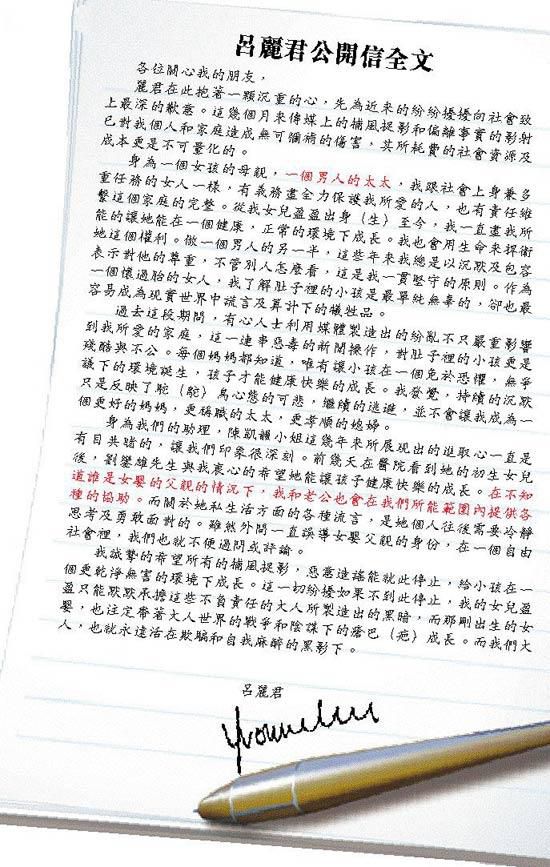 呂麗君公開信全文
各位關心我的朋友，
麗君在此抱著一顆沉重的心，先為近來的紛紛擾擾向社會致
上最深的歉意。這幾個月來傳媒上的捕風捉影和偏離事實的影射
已對我個人和家庭造成無可彌補的傷害，其所耗費的社會資源及
成本更是不可量化的。
身為一個女孩的母親，一個男人的太太，我跟社會上身兼多
重任務的女人一樣，有義務盡全力保護我所愛的人，也有責任維
繫這個家庭的完整。從我女兒盈盈出身（生）至今，我一直盡我所
能的讓她能在一個健康，正常的環境下成長。我也會用生命來捍衛
她這個權利。做一個男人的另一半，這些年來我總是以沉默及包容
表示對他的尊重，不管別人怎麼看，這是我一貫堅守的原則。作為
一個懷過胎的女人，我了解肚子裡的小孩是最單純無毒的，卻也最
容易成為現實世界中謊言及算計下的犧牲品。
過去這段期間，有心人士利用媒體製造出的紛亂不只嚴重影響
到我所愛的家庭，這一連串惡毒的新聞操作，對肚子裡的小孩更是
殘酷與不公。每個媽媽都知道，唯有讓小孩在一個免於恐懼，無爭
議下的環境誕生，孩子才能健康快樂的成長。我發覺，持續的沉默
只是反映了駝（鴕）鳥心態的可悲，繼續的逃避，並不會讓我成為一
個更好的媽媽，更稱職的太太，更孝順的媳婦。
身為我們的助理，陳凱韻小姐這幾年來所展現出的進取心一直是
有目共睹的，讓我們印象很深刻。前幾天在醫院看到她的初生女兒
後，劉鑾雄先生與我衷心的希望她能讓孩子健康快樂的成長。在不知
道誰是女嬰的父親的情況下，我和老公也會在我們所能範圍內提供各
種的協助。而關於她私生活方面的各種流言，是她個人往後需要冷靜
思考及勇敢面對的。雖然外間一直誤導女嬰父親的身份，在一個自由
社會裡，我們也就不便過問或評論。
我誠摯的希望所有的捕風捉影，惡意造謠能就此停止，給小孩在一
個更乾淨無害的環境下成長。這一切紛擾如果不到此停止，我的女兒盈
盈只能默默承擔這些不負責任的大人所製造出的黑暗，而那剛出生的女
嬰，也注定帶著大人世界的戰爭和陰謀下的瘡巴（疤）成長。而我們大
人，也就永遠活在欺騙和自我麻醉的黑影下。
呂麗君